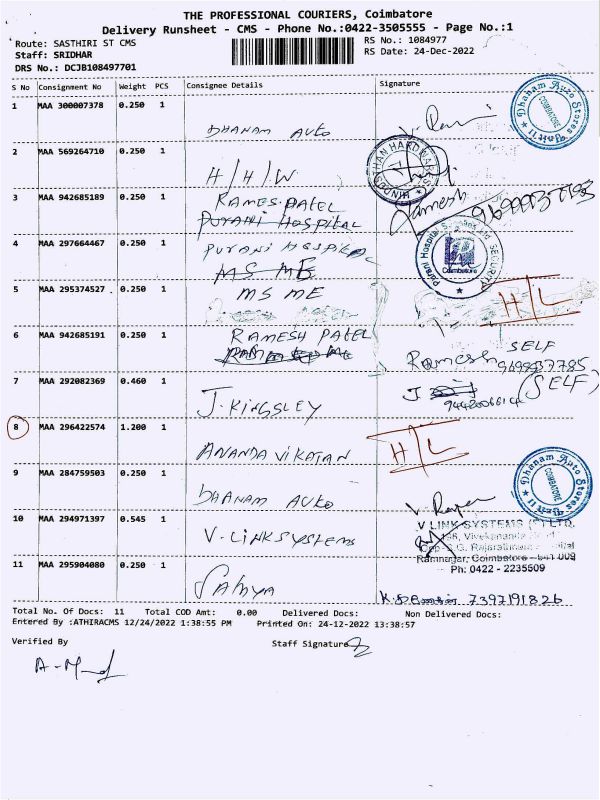 THE PROFESSIONAL COURIERS, Coimbatore
Delivery Runsheet - CMS - Phone No.:0422-3505555 - Page No.:1
Route: SASTHIRI ST CMS
RS No.: 1084977
Staff: SRIDHAR
RS Date: 24-Dec-2022
DRS No.: DCJB108497701
S No Consignment No Weight PCS Consignee Details Signature
1 MAA 300007378 0.250 1
DHANAM AUTO
Dhanam Auto Stores
COIMBATORE
2 MAA 569264710 0.250 1
H/H/W
3 MAA 942685189 0.250 1
RAMES PATEL Ramesh
PURANI HOSPITAL
4 MAA 297664467 0.250 1
PURANI HOSPITAL
MS ME
Purani Hospital Supplies
Coimbatore
SECURITY
5 MAA 295374527 0.250 1
MS ME H/L
6 MAA 942685191 0.250 1
RAMESH PATEL SELF
Ramesh 9698937785
7 MAA 292082369 0.460 1
J. KINGSLEY J (SELF)
8 MAA 296422574 1.200 1
ANANDA VIKATAN H/L
9 MAA 284759503 0.250 1
DHANAM AUTO
Dhanam Auto Stores
COIMBATORE
10 MAA 294971397 0.545 1
V-LINK SYSTEMS
V LINK SYSTEMS (P) LTD.
Ramnagar, Coimbatore - 641 009
Ph: 0422 - 2235509
11 MAA 295904080 0.250 1
Sathya
7397191826
Total No. Of Docs: 11 Total COD Amt: 0.00 Delivered Docs: Non Delivered Docs:
Entered By :ATHIRACMS 12/24/2022 1:38:55 PM Printed On: 24-12-2022 13:38:57
Verified By Staff Signature